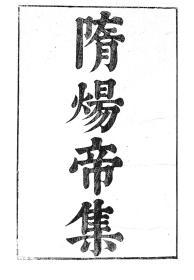 隋煬帝集